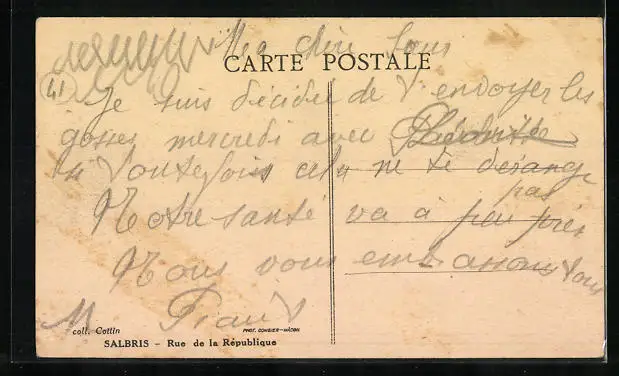 Ma chère
CARTE POSTALE
41
Je suis décidée de t'envoyer les
gosses mercredi avec
si toutefois cela ne te dérange
pas
Notre santé va à peu près
Nous vous embrassons tous
M
coll. Cottin
PHOT. COMBIER-MÂCON
SALBRIS - Rue de la République